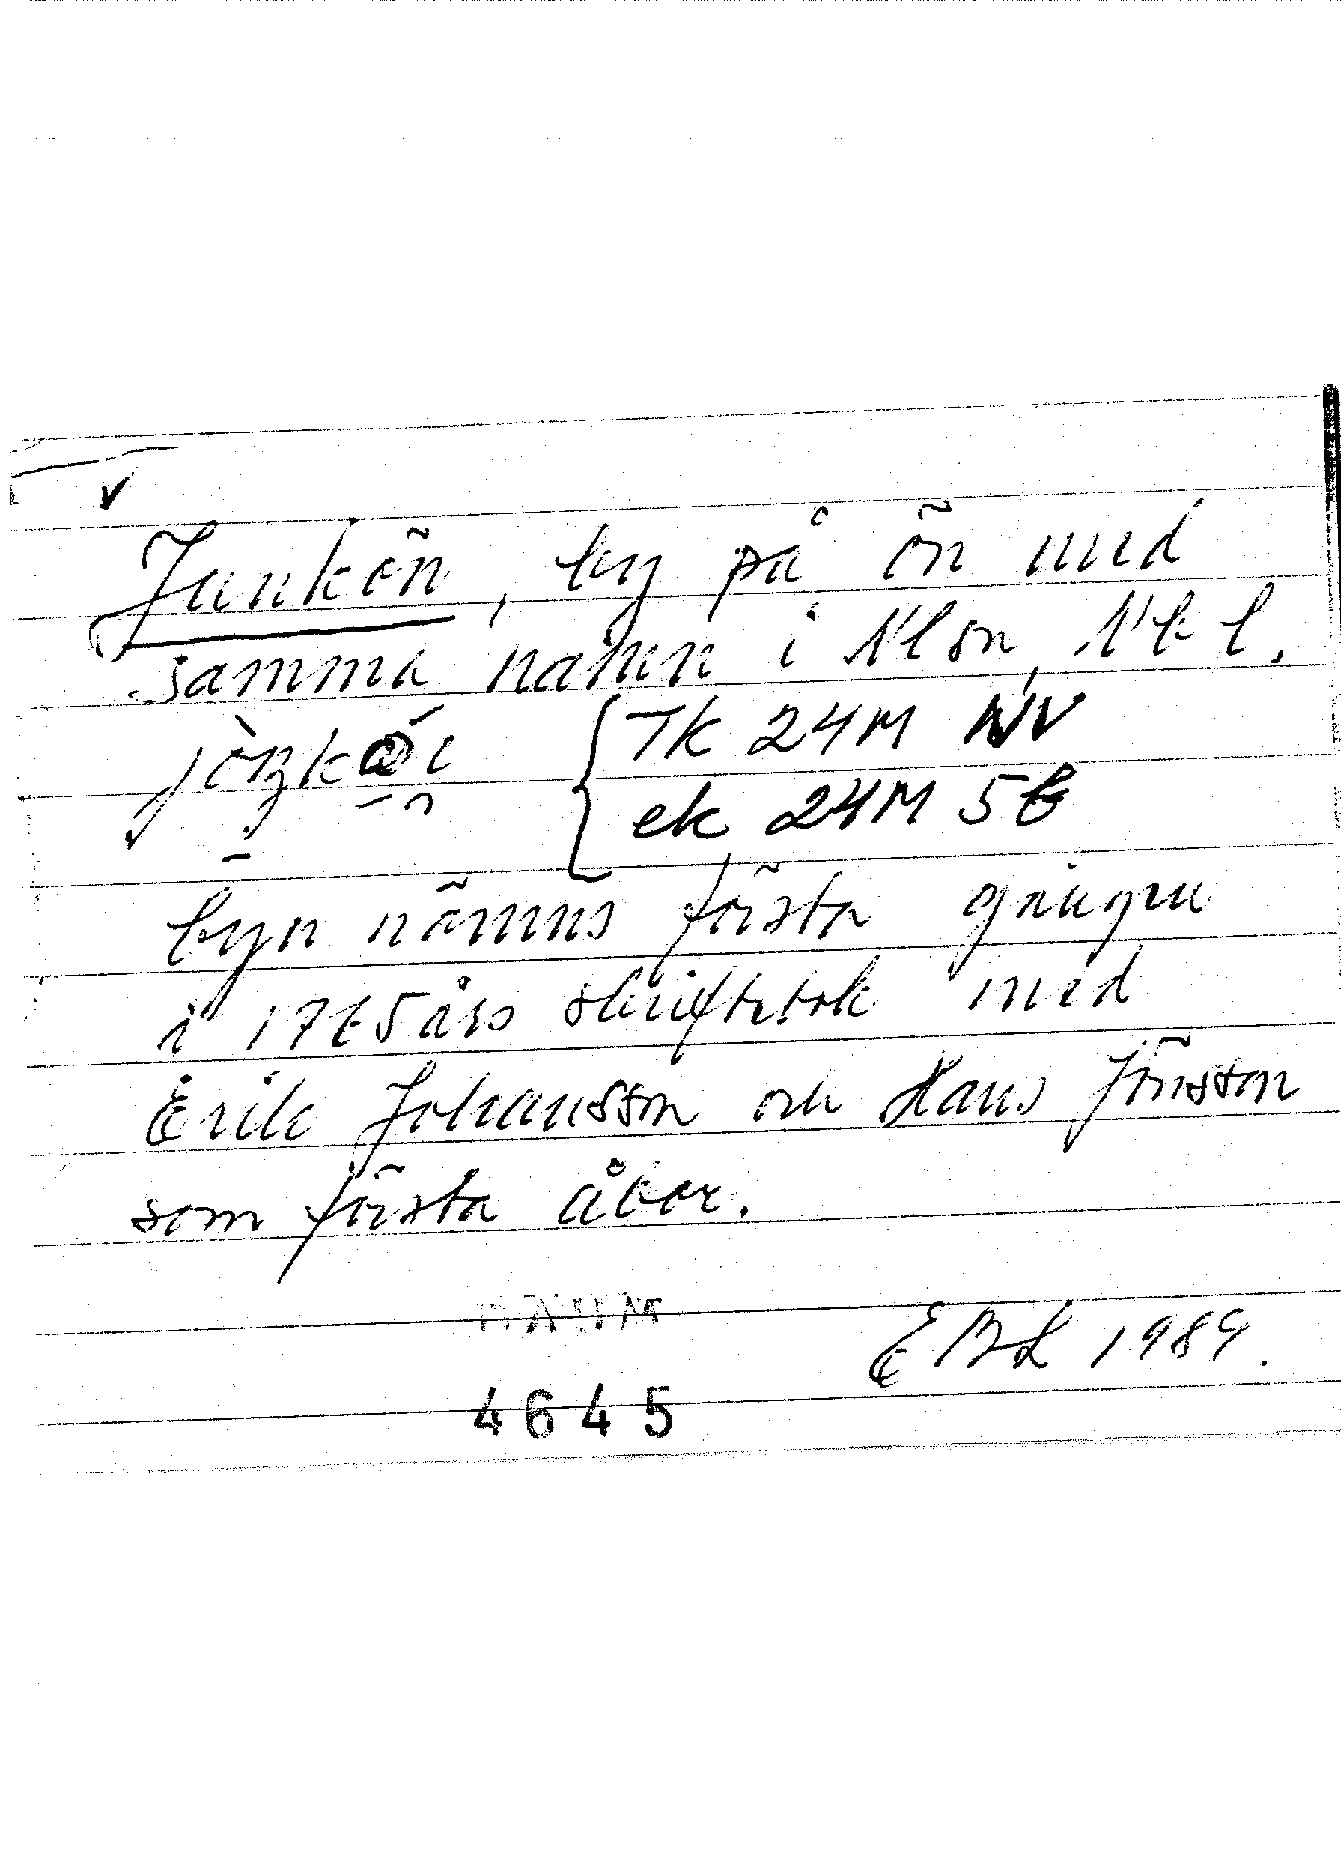 Junkön, by på ön med
samma namn i Nl sn, Nb l.
Tk 24M NV
ek 24M 5b
byn nämns första gången
i 1765 års skriftebok med
Erik Johansson och Hans Jönsson
som första åbor.
DAUM
EBL 1989.
4645